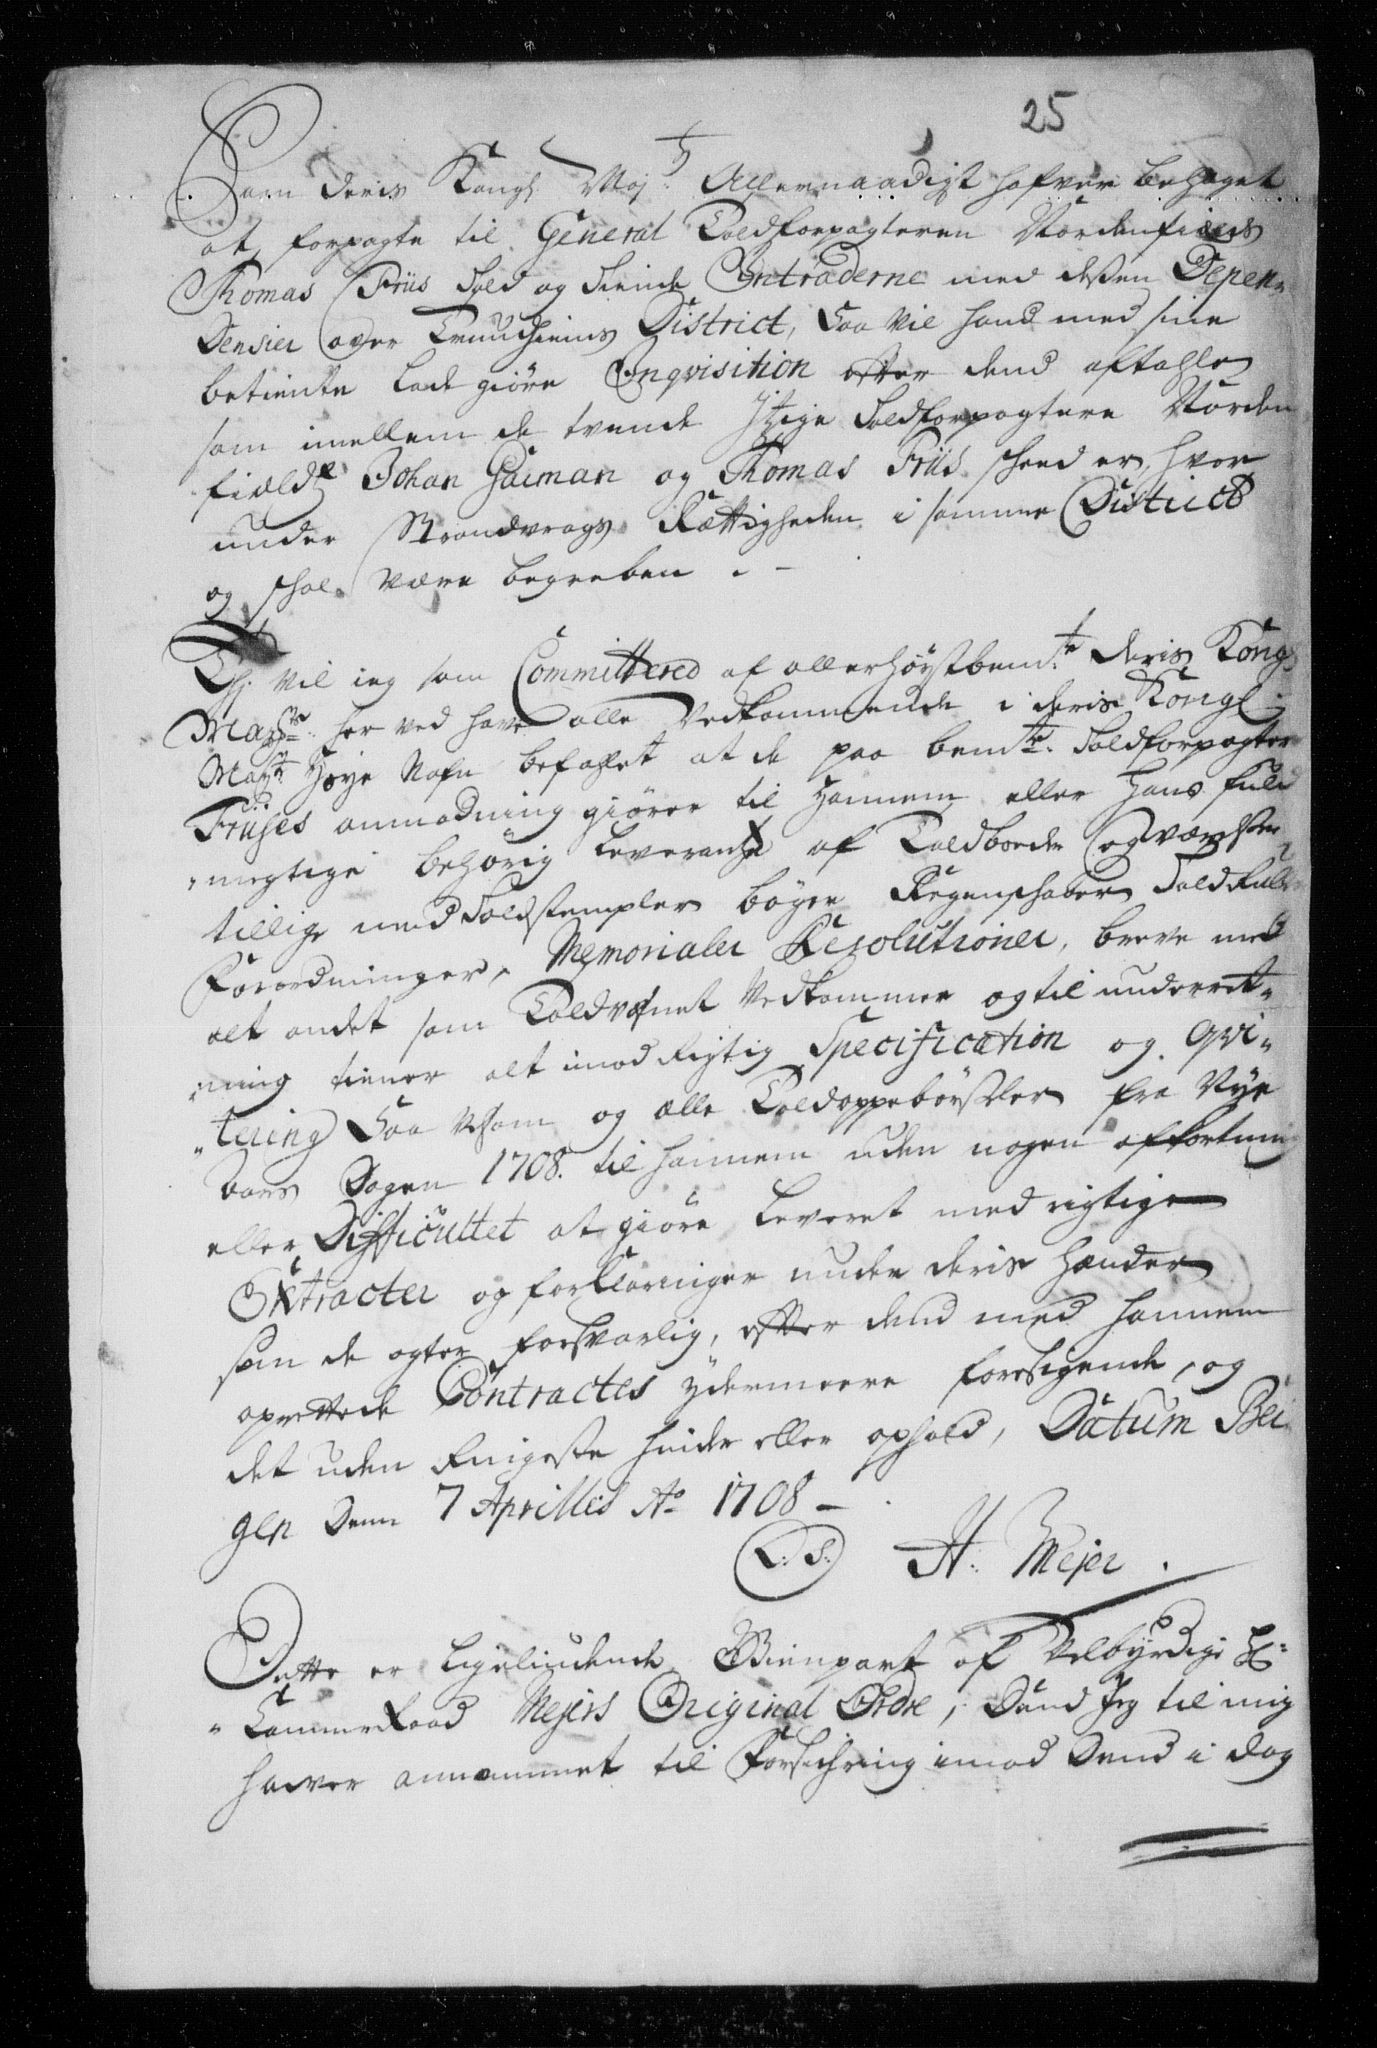 25
Saasom Deris Kongl: May:tt Allernaadigst hafver behaget
at forpagte til General Toldforpagteren Nordenfields
Thomas Friis Told og Tiende Intraderne med desen Depen-
Densier over Trundhiems District, Saa vil hand med sine
betiente lade giøre Inqvisition efter dend aftahle
som imellem de tvende Itzige Toldforpagtere Norden
fields Johan Gaiman og Thomas Friis scheed er, hvor
under Strandvrags Rettigheden i samme District
og schal være begreben. -
Thj vil ieg som Committered af allerhøystbem:te Deris Kongl
May:ts her ved have alle Vedkommende i deris Kongl:
May:ts Høye Nafn befahlet at de paa bem:te Toldforpagter
Friises anmodning giører til Hannem eller Hans fuld
megtige behørig leverantze af Toldboder og værelser
tillige med Toldstempler bøger Regenschaber Toldrul
Forordninger, Memorialer Resolutioner, breve med
alt andet som Toldvæsnet Vedkommer og til underret-
"ning tiener alt imod Rigtig Specification og Qvi-
"tering Saa velsom og alle Toldoppebørseler fra Nye
Aars Dagen 1708. til hannem uden nogen afkortning
eller Difficultet at giøre leveret med rigtige
Extracter og forklaringer under deris hænder
som de agter forsvarlig, efter dend med hannem
oprettede Contractes ydermeere forsigende, og
det uden Ringeste hinder eller ophold, Datum Ber
gen Denn 7 Aprillis Ao 1708 -
L: S: H: Mejer.
Dette er Ligeliudende Gienpart af Velbyrdige Hr:
"CammerRaad Mejers Original Ordre, Dend Jeg til mig
haver annammet til Forsichring imod Dend i dag